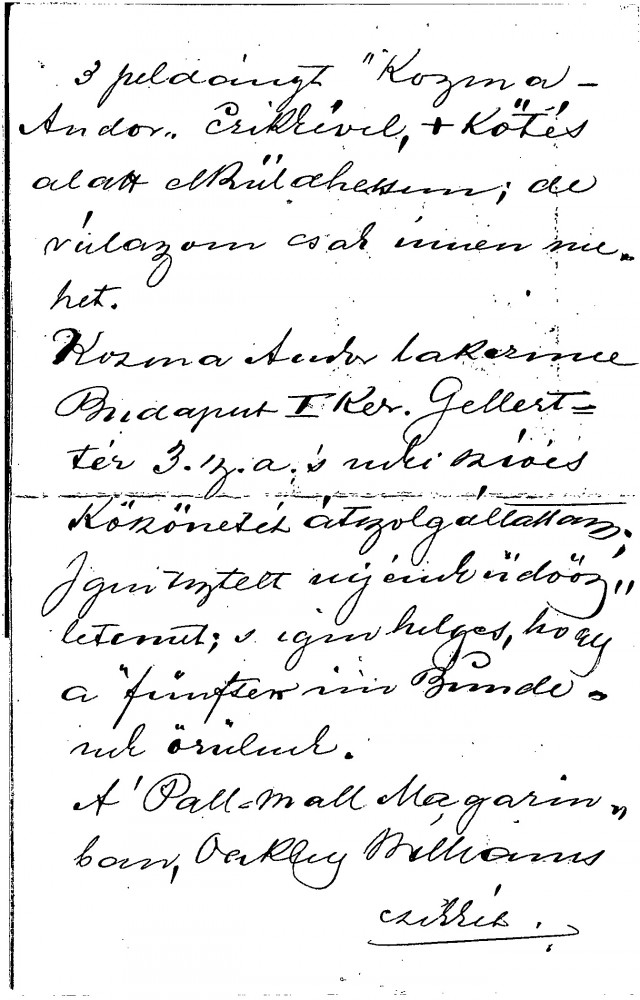 3 peldányt "Kozma-
Andor" Czikkével, + Kötés
alatt elküldhessem; de
válazom csak innen me-
het.
Kozma Andor lakczime
Budapest I Ker. Gellert=
tér 3. sz. a; s neki szives
Köszönetét átszolgáltattam;
Igen tsztelt nejének üdvöz"
letemet; s igen helyes, hogy
a "fünfter im Bunde"
nek örülnek.
A' Pall=Mall Magazin"
ban, Oakley Williams
czikkét.